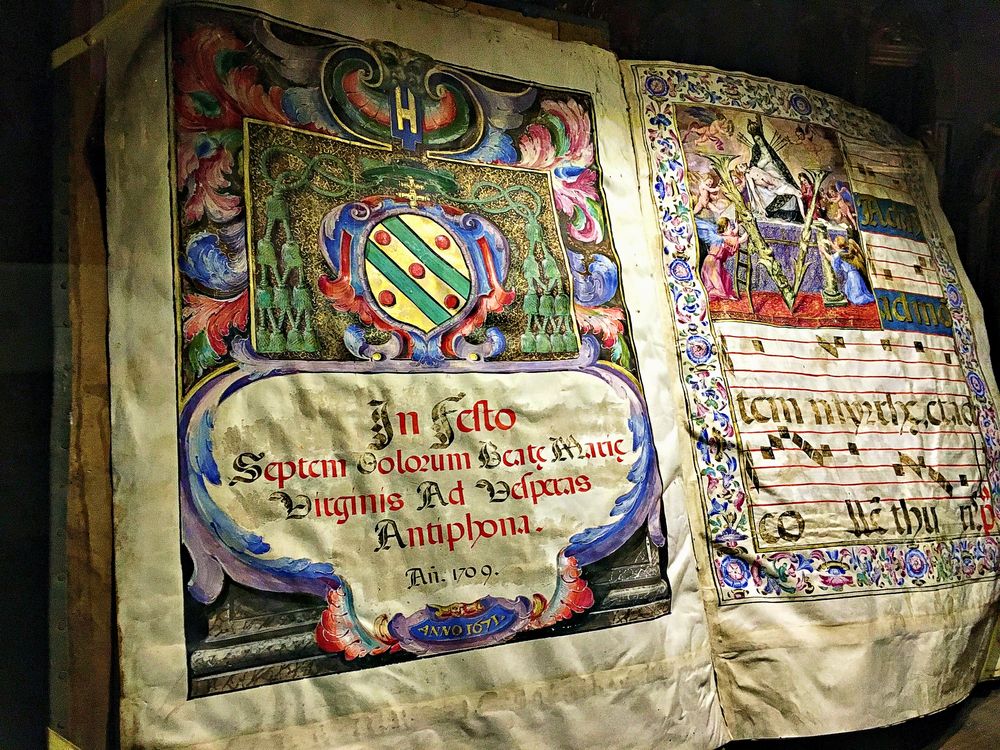 H
In Festo
Septem Dolorum Beatę Marię
Virginis Ad Vesperas
Antiphona.
Añ. 1709.
ANNO 1671
V Adam
ad mo
tem myrrhę, et ad
co llē thu ris